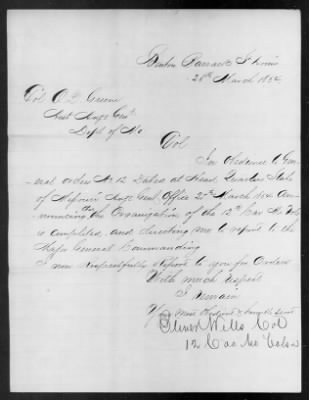 Benton Barracks St Louis
28th March 1864
Col O. D. Greene
Asst Adgt Genl
Dept of Mo
Col
In Obedience to Gen-
eral order No 12 Dated at Head Quarters State
of Missouri Adgt Genl Office 25th March 1864 An-
nouncing the Organization of the 12th Cav Mo Vols
is completed, and directing me to report to the
Major General Commanding
I now Respectfully Report to you for Orders
With much respect
I Remain
Your Most Obedient & humble Servt
Oliver Wells Col
12 Cav Mo Vols